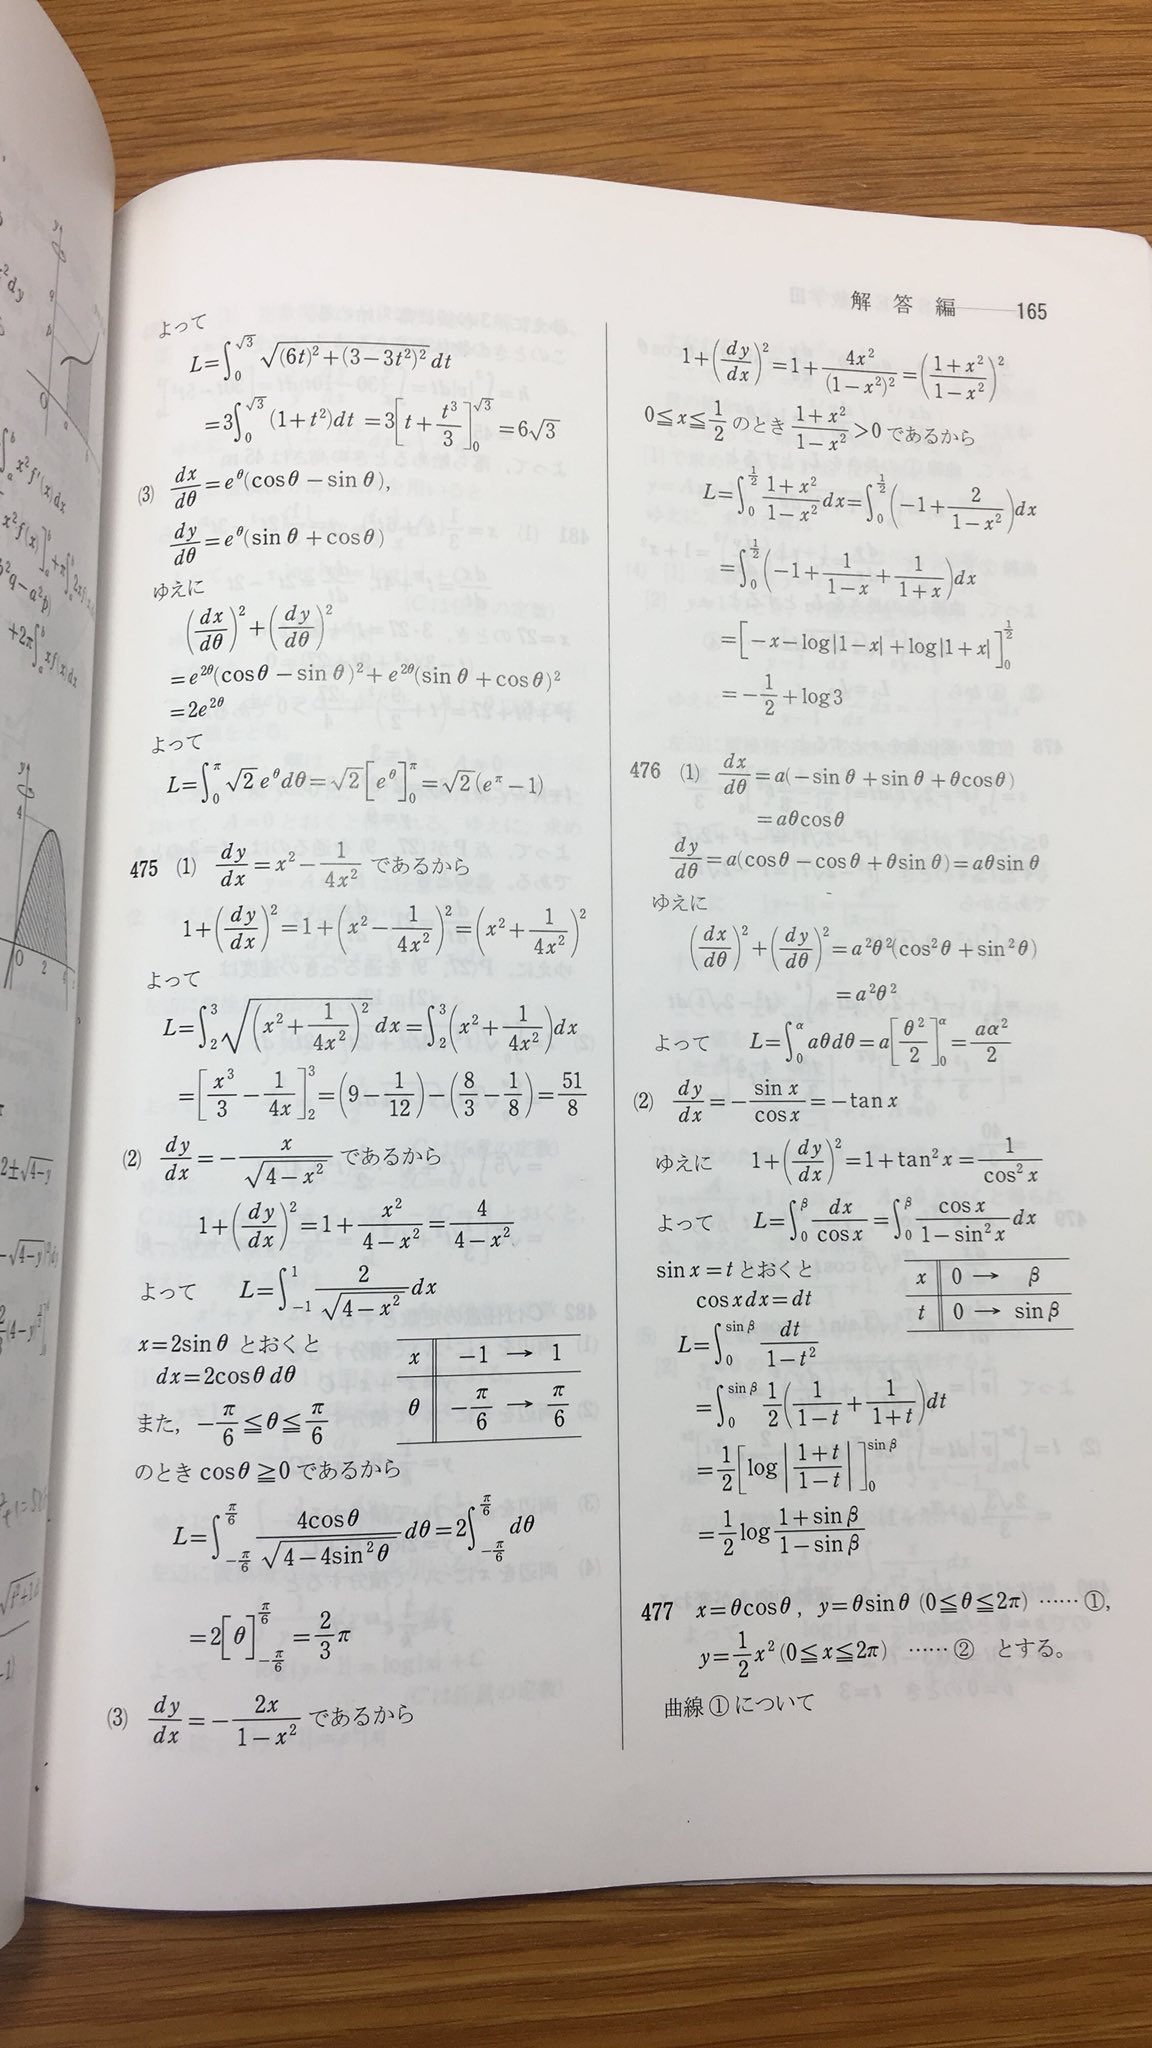 解答編 165
よって
L=∫₀^√3 √((6t)²+(3−3t²)²) dt
=3∫₀^√3 (1+t²)dt =3[t+t³/3]₀^√3 =6√3
(3) dx/dθ=e^θ(cosθ−sinθ),
dy/dθ=e^θ(sinθ+cosθ)
ゆえに
(dx/dθ)²+(dy/dθ)²
=e^2θ(cosθ−sinθ)²+e^2θ(sinθ+cosθ)²
=2e^2θ
よって
L=∫₀^π √2 e^θ dθ=√2[e^θ]₀^π=√2(e^π−1)
475 (1) dy/dx=x²−1/(4x²) であるから
1+(dy/dx)²=1+(x²−1/(4x²))²=(x²+1/(4x²))²
よって
L=∫₂³ √((x²+1/(4x²))²) dx=∫₂³(x²+1/(4x²))dx
=[x³/3−1/(4x)]₂³=(9−1/12)−(8/3−1/8)=51/8
(2) dy/dx=−x/√(4−x²) であるから
1+(dy/dx)²=1+x²/(4−x²)=4/(4−x²)
よって L=∫₋₁¹ 2/√(4−x²) dx
x=2sinθ とおくと
dx=2cosθdθ
x −1 → 1
θ −π/6 → π/6
また，−π/6≦θ≦π/6
のとき cosθ≧0 であるから
L=∫_(−π/6)^(π/6) 4cosθ/√(4−4sin²θ) dθ=2∫_(−π/6)^(π/6) dθ
=2[θ]_(−π/6)^(π/6)=2/3 π
(3) dy/dx=−2x/(1−x²) であるから
1+(dy/dx)²=1+4x²/(1−x²)²=((1+x²)/(1−x²))²
0≦x≦1/2 のとき (1+x²)/(1−x²)>0 であるから
L=∫₀^(1/2) (1+x²)/(1−x²) dx=∫₀^(1/2)(−1+2/(1−x²))dx
=∫₀^(1/2)(−1+1/(1−x)+1/(1+x))dx
=[−x−log|1−x|+log|1+x|]₀^(1/2)
=−1/2+log3
476 (1) dx/dθ=a(−sinθ+sinθ+θcosθ)
=aθcosθ
dy/dθ=a(cosθ−cosθ+θsinθ)=aθsinθ
ゆえに
(dx/dθ)²+(dy/dθ)²=a²θ²(cos²θ+sin²θ)
=a²θ²
よって L=∫₀^α aθdθ=a[θ²/2]₀^α=aα²/2
(2) dy/dx=−sinx/cosx=−tanx
ゆえに 1+(dy/dx)²=1+tan²x=1/cos²x
よって L=∫₀^β dx/cosx=∫₀^β cosx/(1−sin²x) dx
sinx=t とおくと
cosxdx=dt
x 0 → β
t 0 → sinβ
L=∫₀^sinβ dt/(1−t²)
=∫₀^sinβ 1/2(1/(1−t)+1/(1+t))dt
=1/2[log|(1+t)/(1−t)|]₀^sinβ
=1/2 log (1+sinβ)/(1−sinβ)
477 x=θcosθ, y=θsinθ (0≦θ≦2π) ……①,
y=1/2 x² (0≦x≦2π) ……② とする。
曲線①について